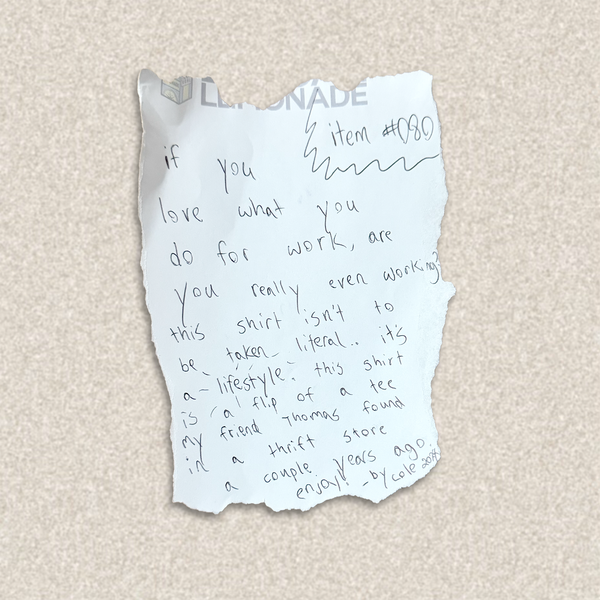 LEMONADE
item #080
if you
love what you
do for work, are
you really even working?
this shirt isn't to
be taken literal.. it's
a lifestyle. this shirt
is a flip of a tee
my friend Thomas found
in a thrift store
a couple years ago
enjoy! - by cole